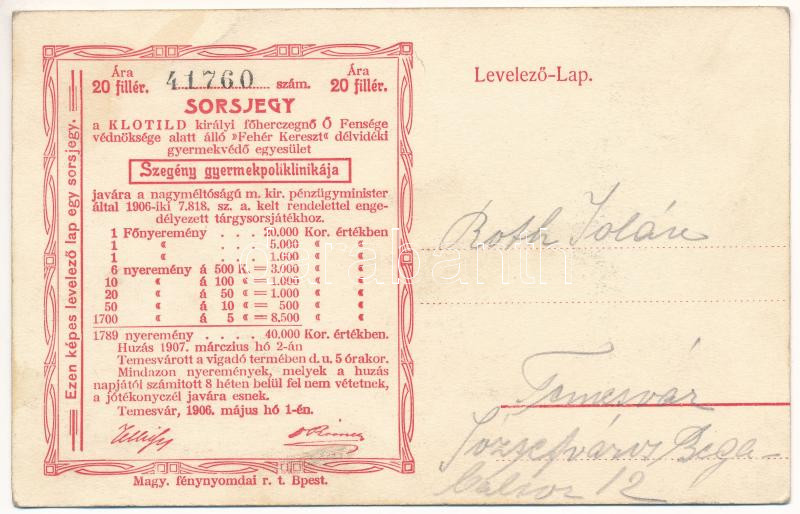 Ára
20 fillér.
41760
szám.
Ára
20 fillér.
SORSJEGY
a KLOTILD királyi főherczegnő Ő Fensége
védnöksége alatt álló »Fehér Kereszt« délvidéki
gyermekvédő egyesület
Szegény gyermekpoliklinikája
javára a nagyméltóságú m. kir. pénzügyminister
által 1906-iki 7.818. sz. a. kelt rendelettel enge-
délyezett tárgysorsjátékhoz.
1 Főnyeremény . . . 20.000 Kor. értékben
1 « . . . 5.000 « «
1 « . . . 1.000 « «
6 nyeremény á 500 K. = 3.000 « «
10 « á 100 « = 1.000 « «
20 « á 50 « = 1.000 « «
50 « á 10 « = 500 « «
1700 « á 5 « = 8.500 « «
1789 nyeremény . . . . 40.000 Kor. értékben.
Huzás 1907. márczius hó 2-án
Temesvárott a vigadó termében d. u. 5 órakor.
Mindazon nyeremények, melyek a huzás
napjától számitott 8 héten belül fel nem vétetnek,
a jótékonyczél javára esnek.
Temesvár, 1906. május hó 1-én.
Magy. fénynyomdai r. t. Bpest.
Ezen képes levelező lap egy sorsjegy.
Levelező-Lap.
Roth Jolán
Temesvár
Józsefváros Bega-
balsor 12
darabanth